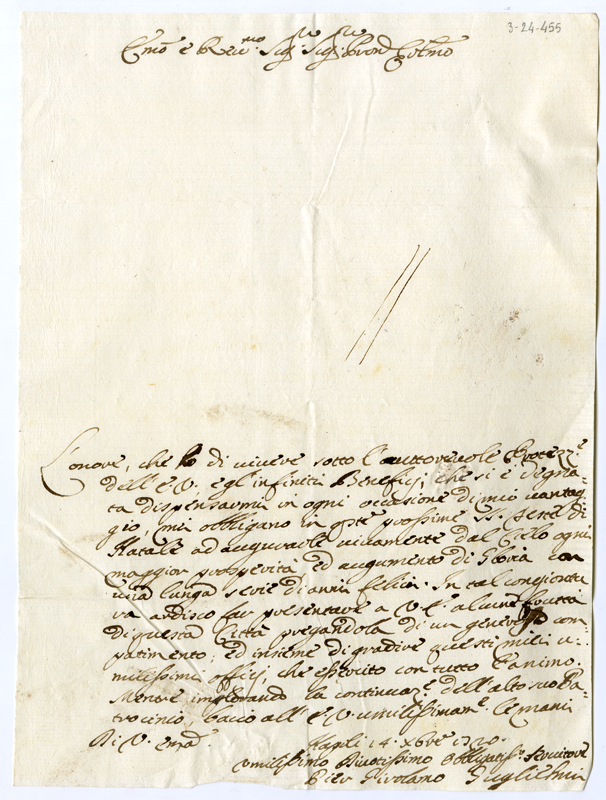 3-24-455
Emo e Reumo Sigre Sigre Pron Colmo
L'onore, che ho di uiuere sotto l'autoreuole Protezze
dell'E.V. e gl'infiniti Beneficij, che si è degna-
ta dispensarmi in ogni occasione di mio uantag-
gio, mi obbligano in qste prossime Ss. Feste di
Natale ad augurarle uiuamente dal Cielo ogni
maggior prosperità ed augumento di Gloria con
una lunga serie di anni felici. In tal congiontu-
ra ardisco far presentare a V.E. alcune frutta
di questa Città pregandola di un generoso com-
patimento, ed insieme di gradire questi miei u-
milissimi officij, che esercito con tutto l'animo.
Mentre implorando la continuaze dell'alto suo Pa-
trocinio, bacio all'E.V. umilissimame le mani
Di V. Emza
Napoli 14. Xbre 1720.
Umilissimo Diuotissimo Obbligatiss.o Seruitore
Pier Girolamo Guglielmi